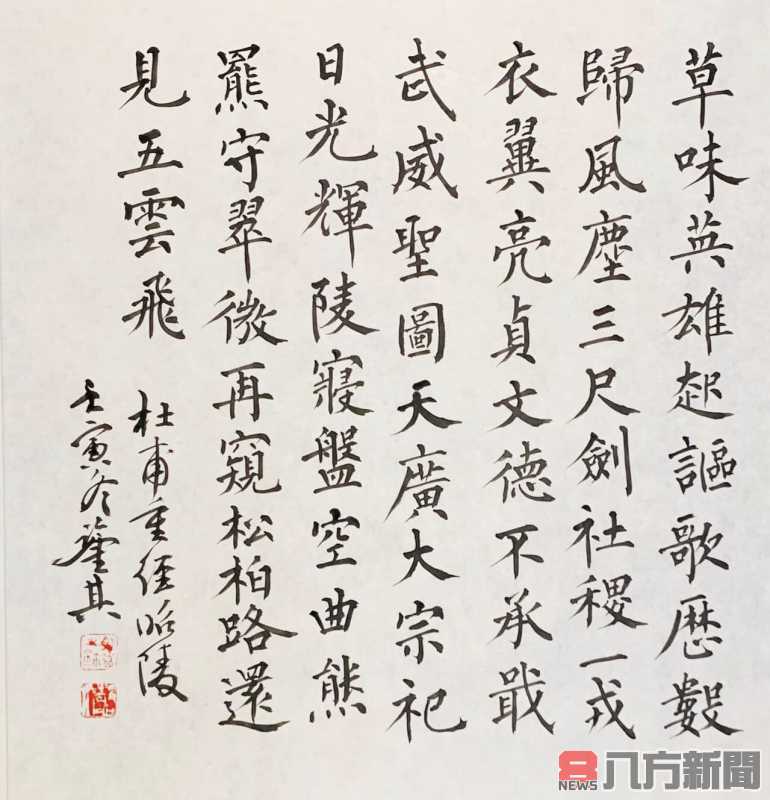 草味英雄起謳歌歷數
歸風塵三尺劍社稷一戎
衣翼亮貞文德丕承戢
武威聖圖天廣大宗祀
日光輝陵寢盤空曲熊
羆守翠微再窺松柏路還
見五雲飛
杜甫重經昭陵
壬寅冬其
8 NEWS 八方新聞